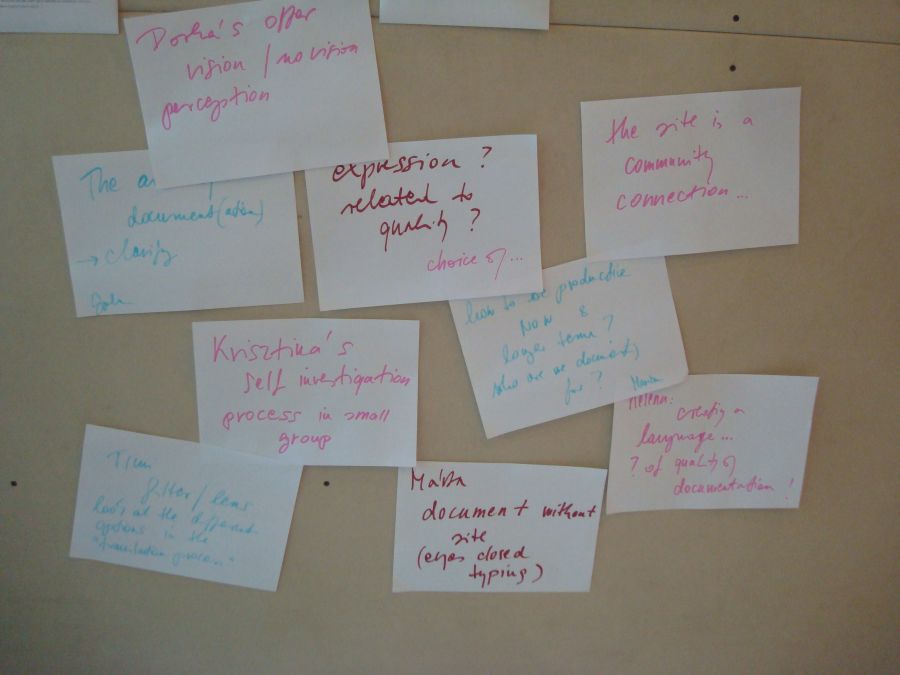 Dorka's offer
vision / no vision
perception
The
document(ation)
→ clarify
expression?
related to
quality?
choice of...
the site is a
community
connection...
how to be productive
Now &
longer term?
who are we documenting
for?
Maria
Krisztina's
self investigation
process in small
group
Helena:
creating a
language...
? of quality of
documentation!
filter / lens
look at the different
options in the
"translation process"
document without
site
(eyes closed
typing)